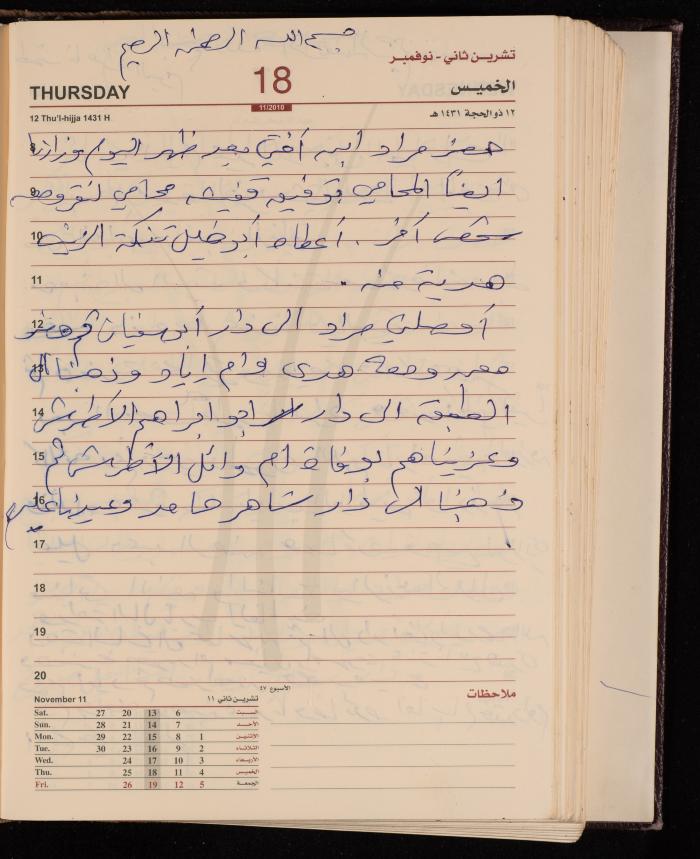 بسم الله الرحمن الرحيم
تشرين ثاني - نوفمبر
THURSDAY 18 الخميس
11/2010
12 Thu'l-hijja 1431 H ١٢ ذو الحجة ١٤٣١ هـ
8 حضر مراد ابن أختي بعد ظهر اليوم وزارنا
9 ايضاً المحامي توفيق قفيشه محامي
10 شخص آخر . أعطاه أبو خليل تنكة الزيت
11 هدية منه .
12 أوصلني مراد الى دار أبو سفيان
13 ومعه هدى وام إياد وذهبنا الى
14 الطبقة الى دار ابو ابراهيم الأطرش
15 وعزيناهم بوفاة ام وائل الأطرش ثم
16 وذهبنا الى دار شاهر حامد وعيدنا عليهم
17 .
18
19
20
الأسبوع ٤٧
ملاحظات
November 11 تشرين ثاني ١١
Sat. 27 20 13 6 السبت
Sun. 28 21 14 7 الأحد
Mon. 29 22 15 8 1 الاثنين
Tue. 30 23 16 9 2 الثلاثاء
Wed. 24 17 10 3 الأربعاء
Thu. 25 18 11 4 الخميس
Fri. 26 19 12 5 الجمعة